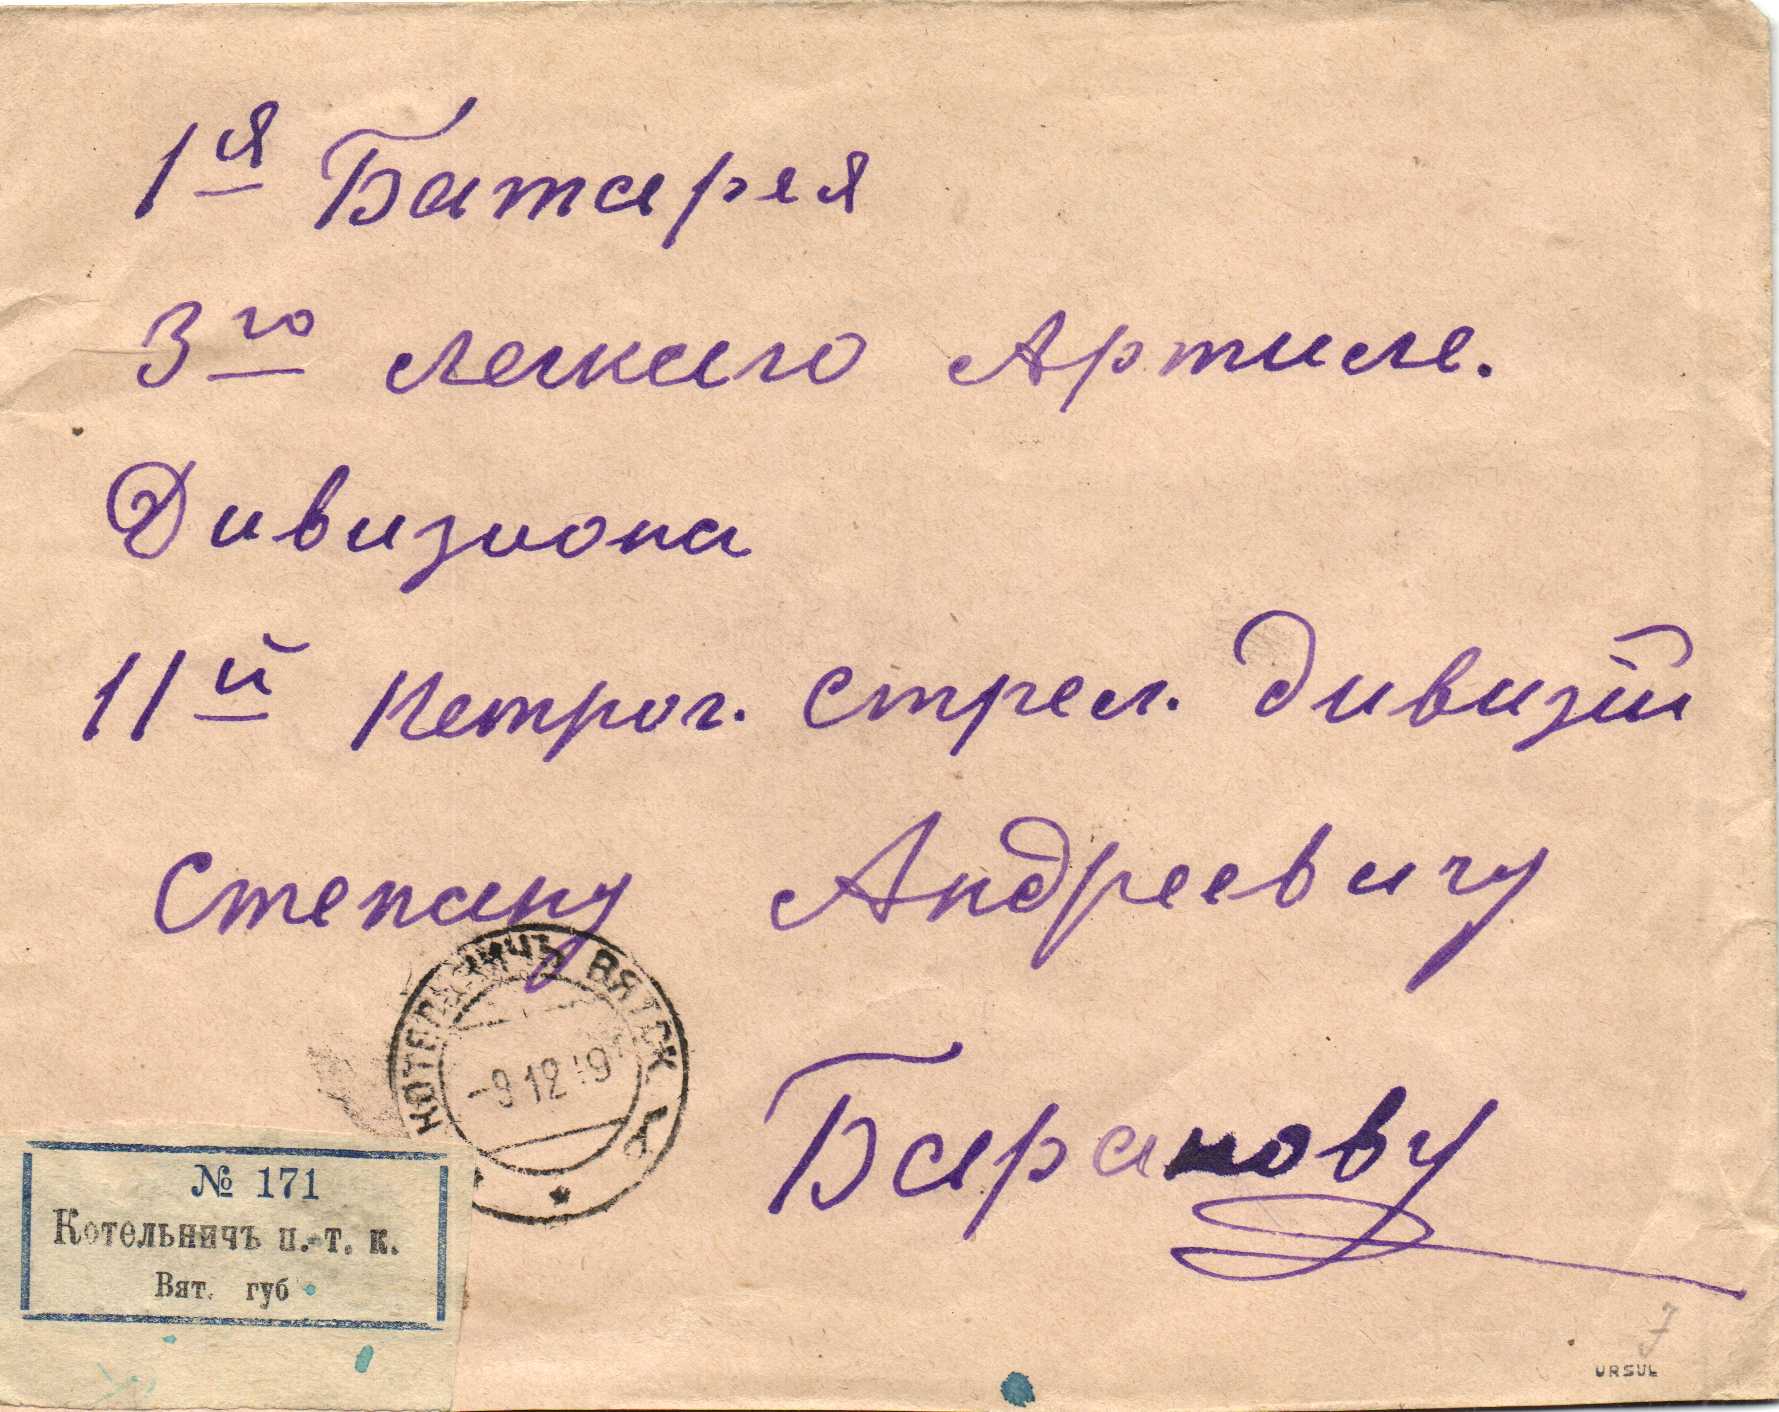 1я Батарея
3го легкаго Артиле.
Дивизиона
11й Петрог. стрел. Дивизіи
Степану Андреевичу
Баранову
КОТЕЛЬНИЧЪ ВЯТСК
-9 12 19
№ 171
Котельничъ п.-т. к.
Вят. губ
7
URSUL